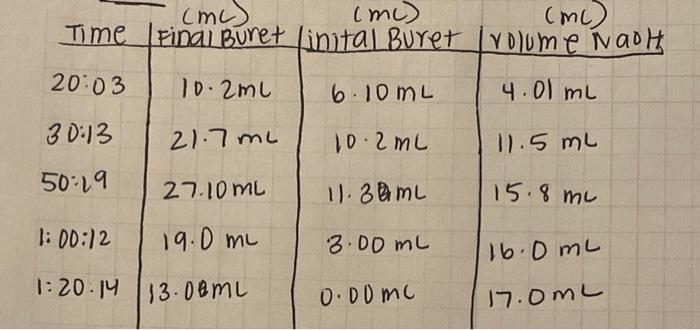 (mL) (mL) (mL)
Time Final Buret inital Buret volume NaOH
20:03 10.2mL 6.10 mL 4.01 mL
30:13 21.7 mL 10.2 mL 11.5 mL
50:29 27.10 mL mL 15.8 mL
1:00:12 19.0 mL 3.00 mL 16.0 mL
1:20:14 mL 0.00 mL 17.0 mL